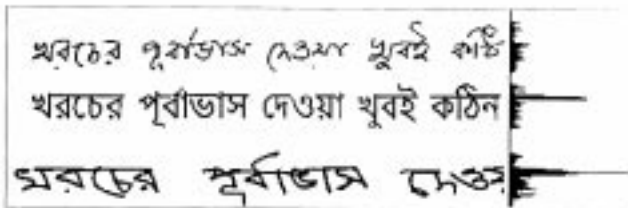 খরচের পূর্বাভাস দেওয়া খুবই কঠি
খরচের পূর্বাভাস দেওয়া খুবই কঠিন
খরচের পূর্বাভাস দেওয়